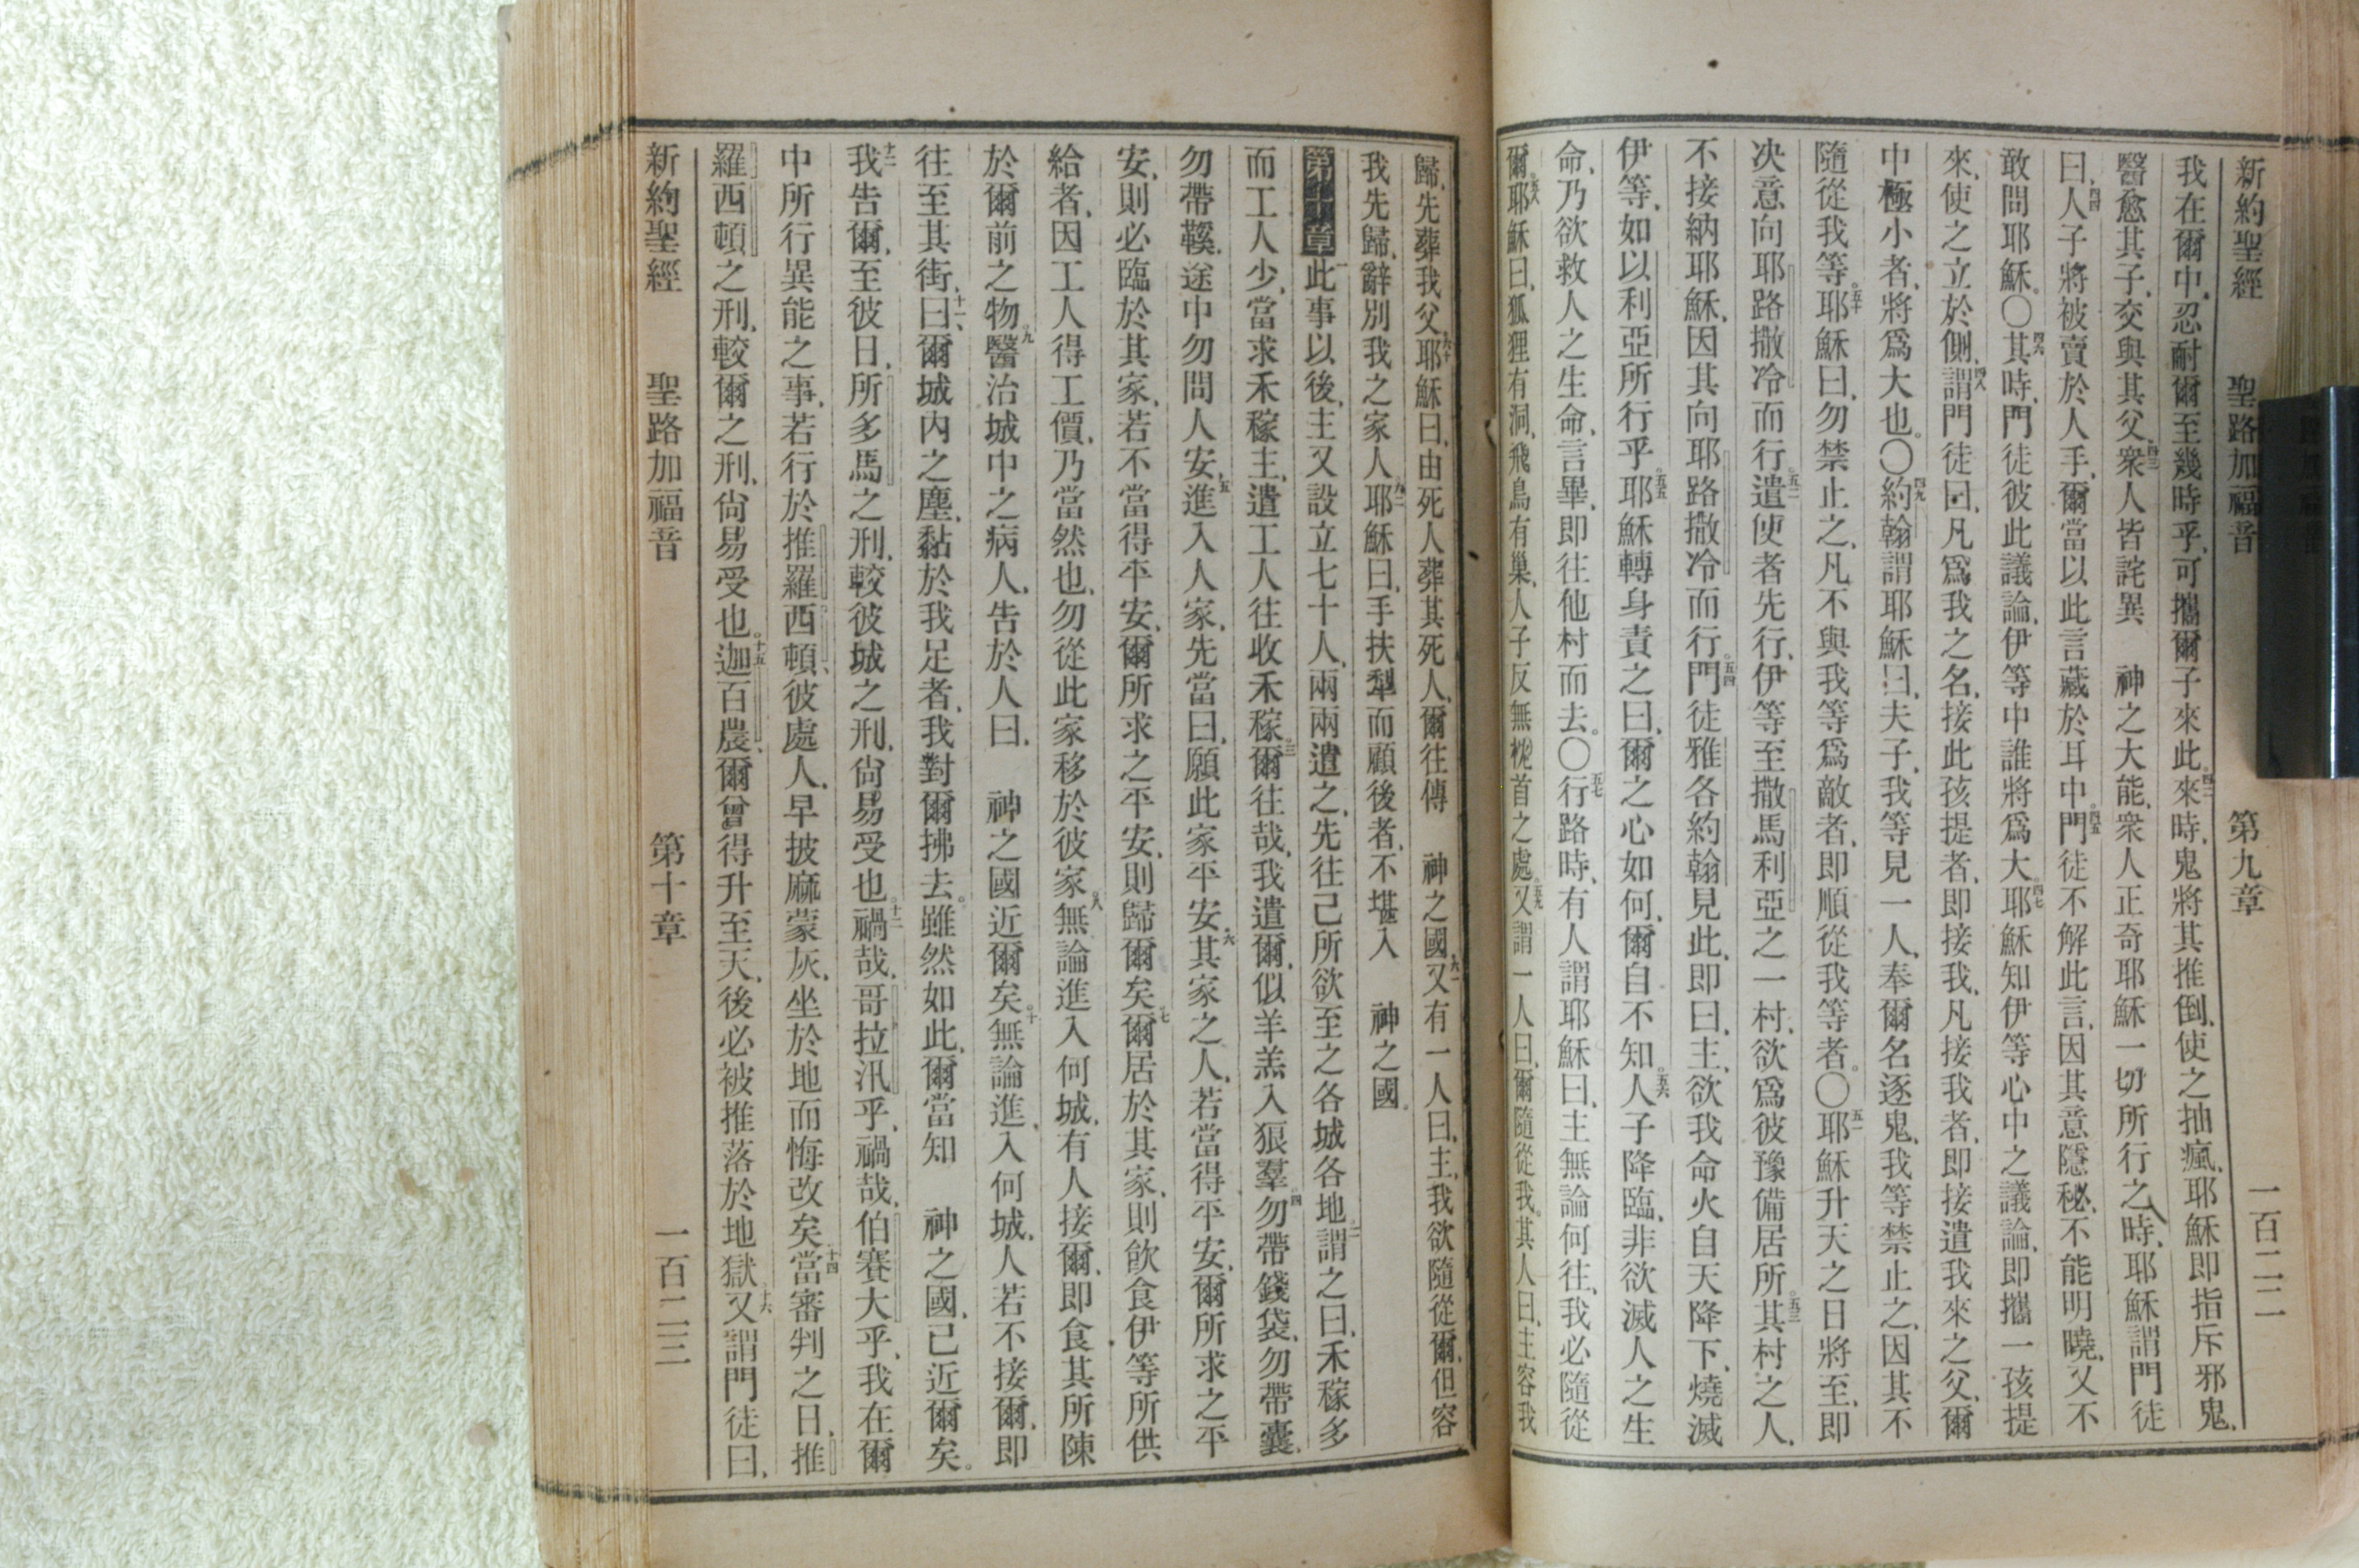 新約聖經 聖路加福音 第九章 一百二十二
我在爾中、忍耐爾至幾時乎、可攜爾子來此。四二來時、鬼將其推倒、使之抽瘋、耶穌即指斥邪鬼、
醫愈其子、交與其父。四三衆人皆詫異 神之大能、衆人正奇耶穌一切所行之時、耶穌謂門徒
曰、四四人子將被賣於人手、爾當以此言藏於耳中。四五門徒不解此言、因其意隱秘、不能明曉、又不
敢問耶穌。〇四六其時、門徒彼此議論、伊等中誰將爲大。四七耶穌知伊等心中之議論、即攜一孩提
來、使之立於側、四八謂門徒曰、凡爲我之名、接此孩提者、即接我、凡接我者、即接遣我來之父、爾
中極小者、將爲大也。〇四九約翰謂耶穌曰、夫子、我等見一人、奉爾名逐鬼、我等禁止之、因其不
隨從我等。五十耶穌曰、勿禁止之、凡不與我等爲敵者、即順從我等者。〇五一耶穌升天之日將至、即
决意向耶路撒冷而行。五二遣使者先行、伊等至撒馬利亞之一村、欲爲彼豫備居所。五三其村之人、
不接納耶穌、因其向耶路撒冷而行。五四門徒雅各約翰見此、即曰、主、欲我命火自天降下、燒滅
伊等、如以利亞所行乎。五五耶穌轉身責之曰、爾之心如何、爾自不知。五六人子降臨、非欲滅人之生
命、乃欲救人之生命、言畢、即往他村而去。〇五七行路時、有人謂耶穌曰、主無論何往、我必隨從
爾。五八耶穌曰、狐狸有洞、飛鳥有巢、人子反無枕首之處。五九又謂一人曰、爾隨從我。其人曰、主、容我
歸、先葬我父。六十耶穌曰、由死人葬其死人、爾往傳 神之國。六一又有一人曰、主、我欲隨從爾、但容
我先歸、辭別我之家人。六二耶穌曰、手扶犁而顧後者、不堪入 神之國。
第十章一此事以後、主又設立七十人、兩兩遣之、先往己所欲至之各城各地。二謂之曰、禾稼多
而工人少、當求禾稼主、遣工人往收禾稼。三爾往哉、我遣爾、似羊羔入狼羣。四勿帶錢袋、勿帶囊、
勿帶鞵、途中勿問人安。五進入人家、先當曰、願此家平安。六其家之人、若當得平安、爾所求之平
安、則必臨於其家、若不當得平安、爾所求之平安、則歸爾矣。七爾居於其家、則飲食伊等所供
給者、因工人得工價、乃當然也、勿從此家移於彼家。八無論進入何城、有人接爾、即食其所陳
於爾前之物。九醫治城中之病人、告於人曰、 神之國近爾矣。十無論進入何城、人若不接爾、即
往至其街、十一曰、爾城內之塵、黏於我足者、我對爾拂去。雖然如此、爾當知 神之國、已近爾矣。
十二我告爾、至彼日、所多馬之刑、較彼城之刑、尙易受也。十三禍哉、哥拉汛乎、禍哉、伯賽大乎、我在爾
中所行異能之事、若行於推羅西頓、彼處人、早披麻蒙灰、坐於地而悔改矣。十四當審判之日、推
羅西頓之刑、較爾之刑、尙易受也。十五迦百農、爾曾得升至天、後必被推落於地獄。十六又謂門徒曰、
新約聖經 聖路加福音 第十章 一百二十三